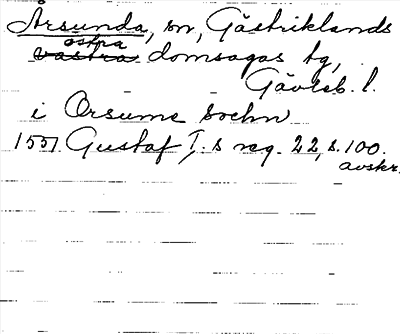 Årsunda, sn, Gästriklands
östra
västra domsagas tg,
Gävleb. l.
i Orsume sochn
1551 Gustaf I:s reg. 22, s. 100.
avskr.